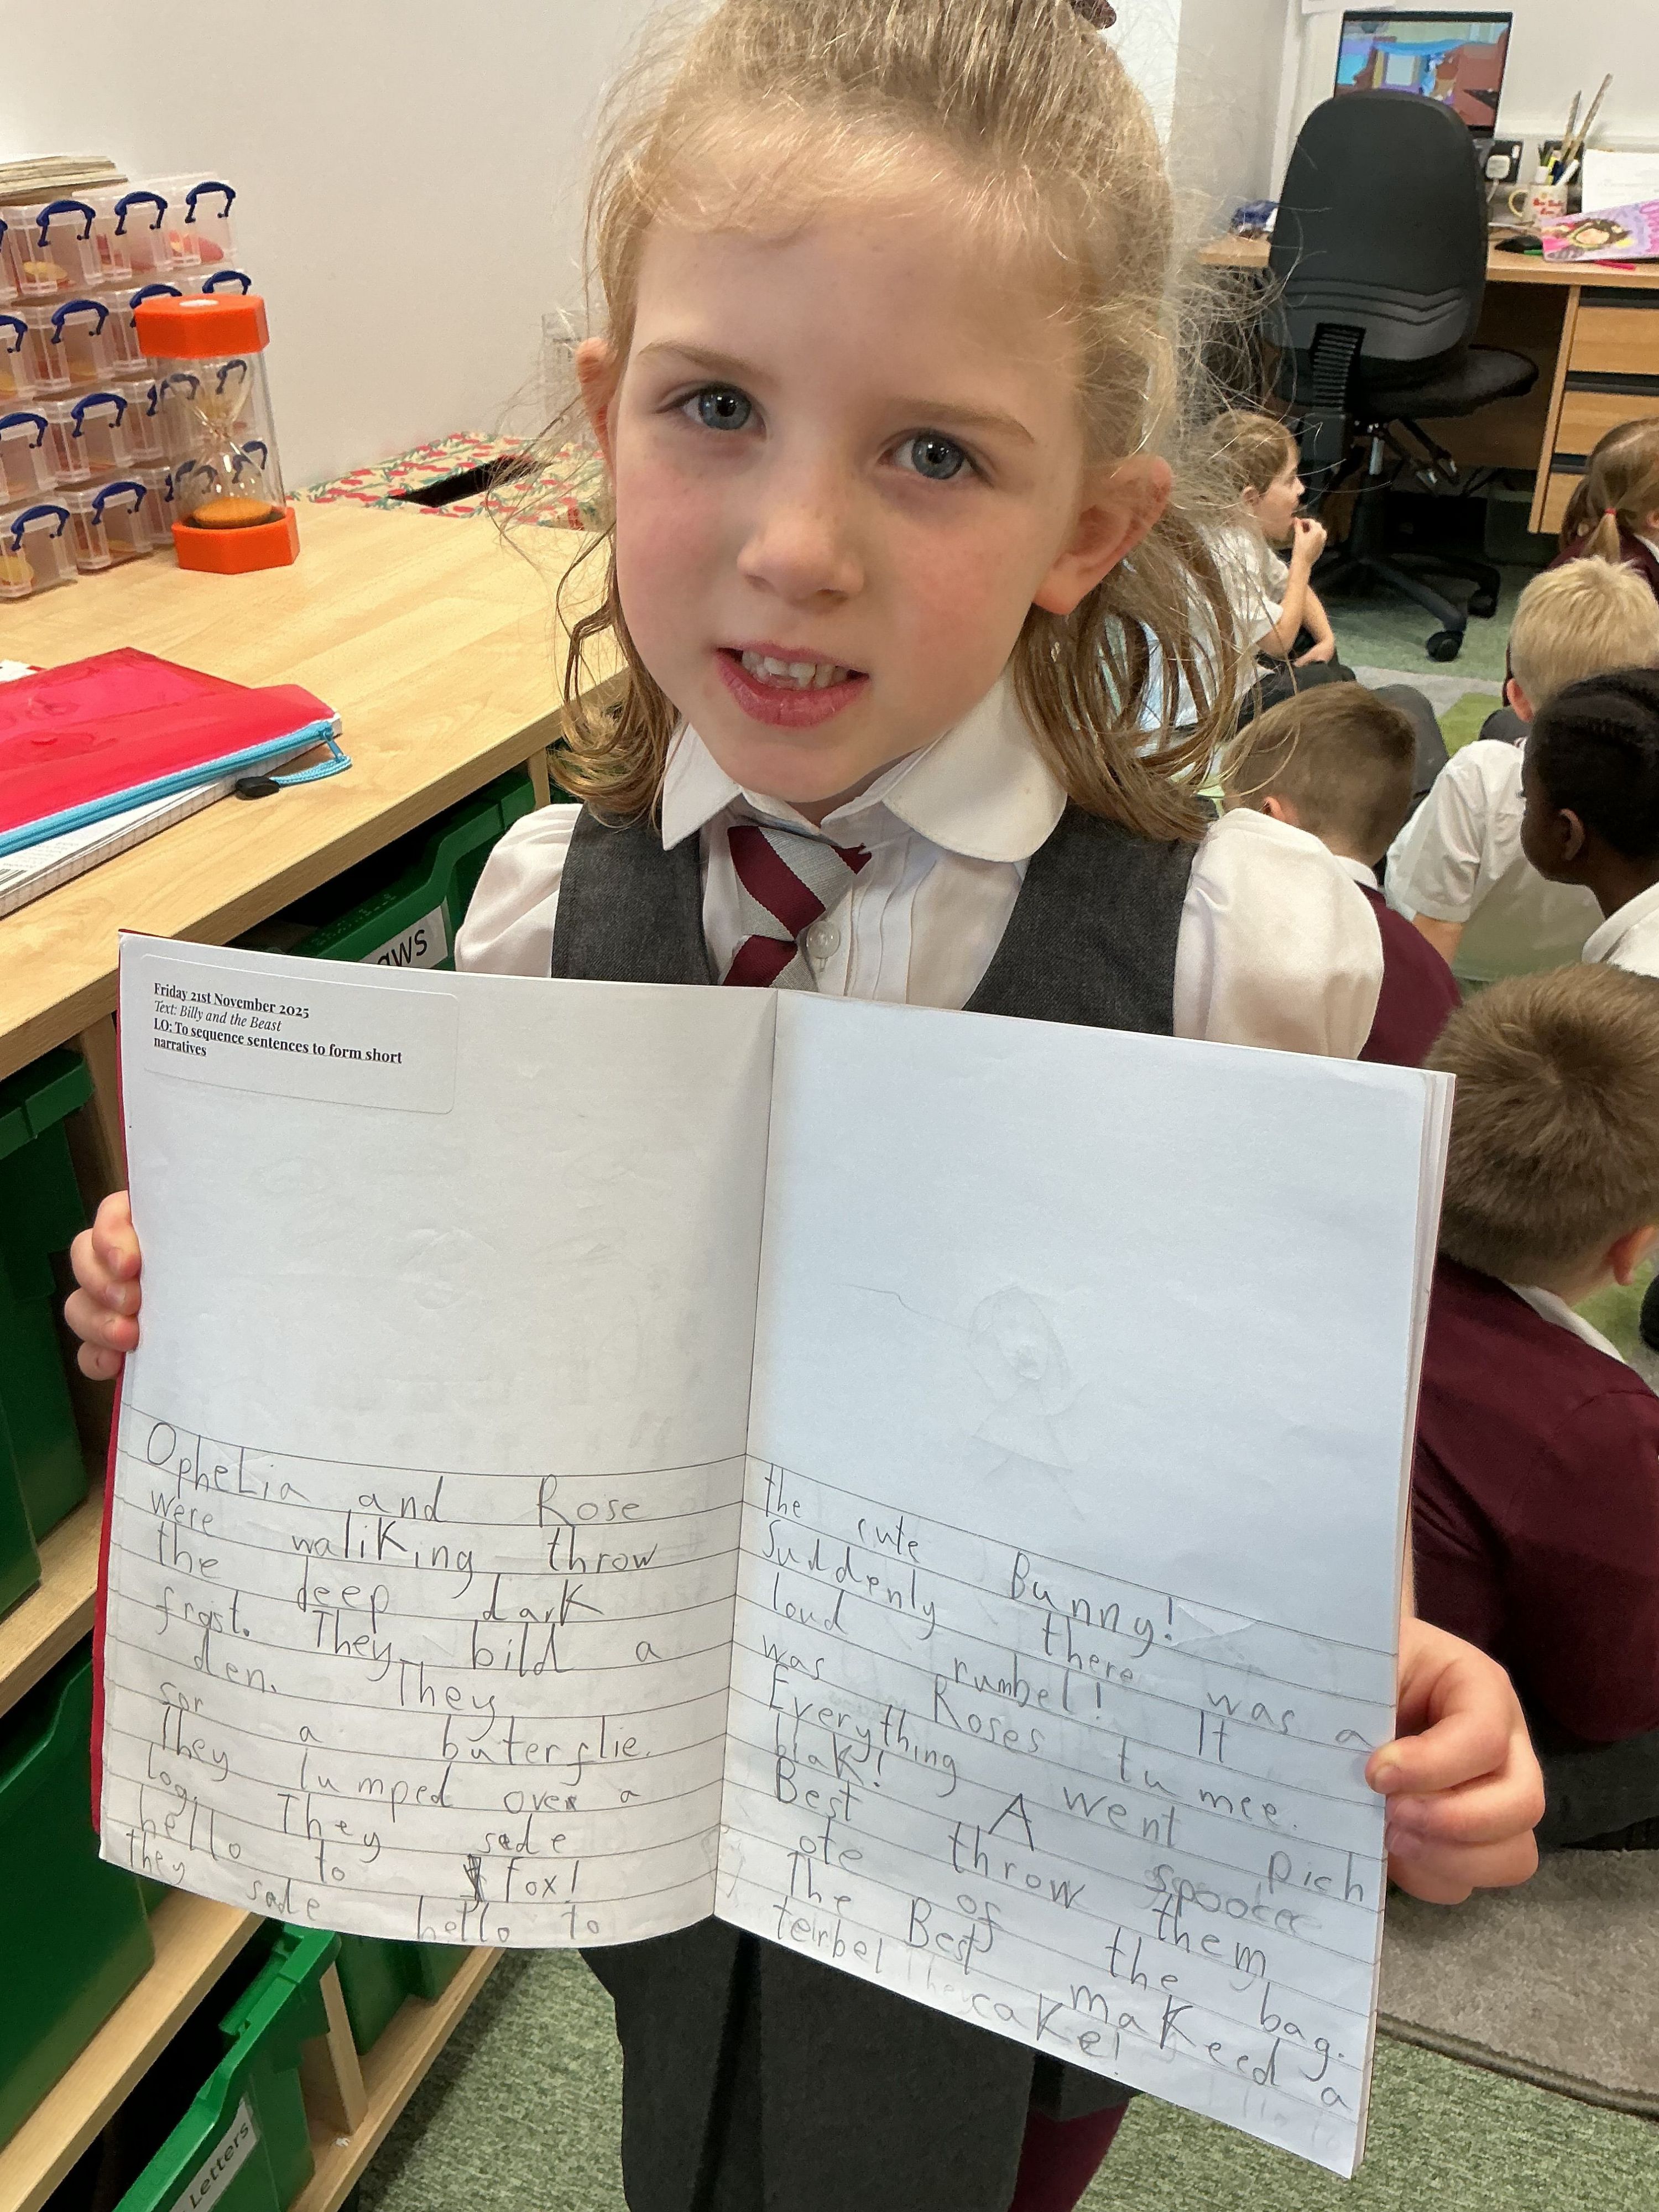 Friday 21st November 2025
Text: Billy and the Beast
LO: To sequence sentences to form short
narratives
Ophelia and Rose
were waliking throw
the deep dark
frost. They bild a
den. They
sor a buterflie.
They jumped over a
log. They sade
hello to fox!
they sade hello to
the cute Bunny!
Suddenly there was a
loud rumbel! It
was Roses tumee.
Everything went pich
blak! A spooee
Best throw them
ote of the bag.
The Best makeed a
teirbel cake!
aws
Letters